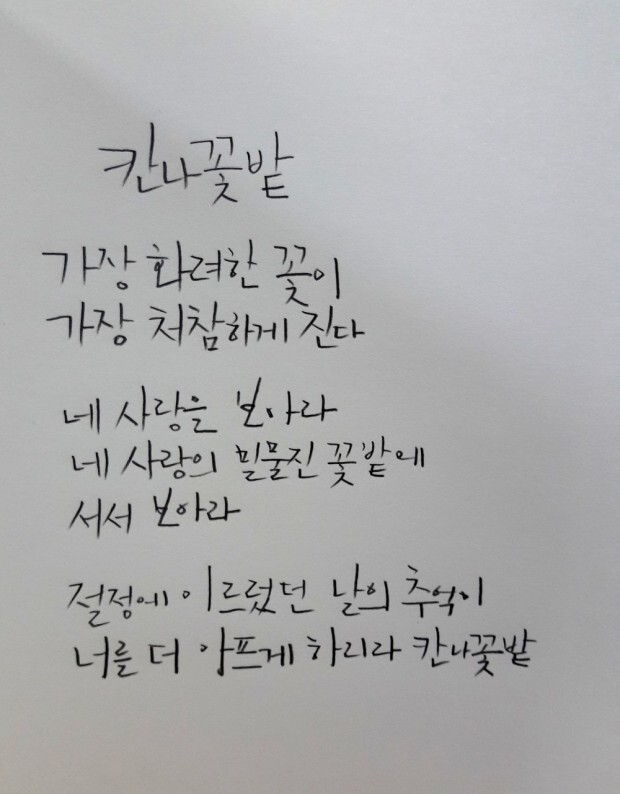 칸나꽃밭
가장 화려한 꽃이
가장 처참하게 진다
네 사랑을 보아라
네 사랑의 밀물진 꽃밭에
서서 보아라
절정에 이르렀던 날의 추억이
너를 더 아프게 하리라 칸나꽃밭